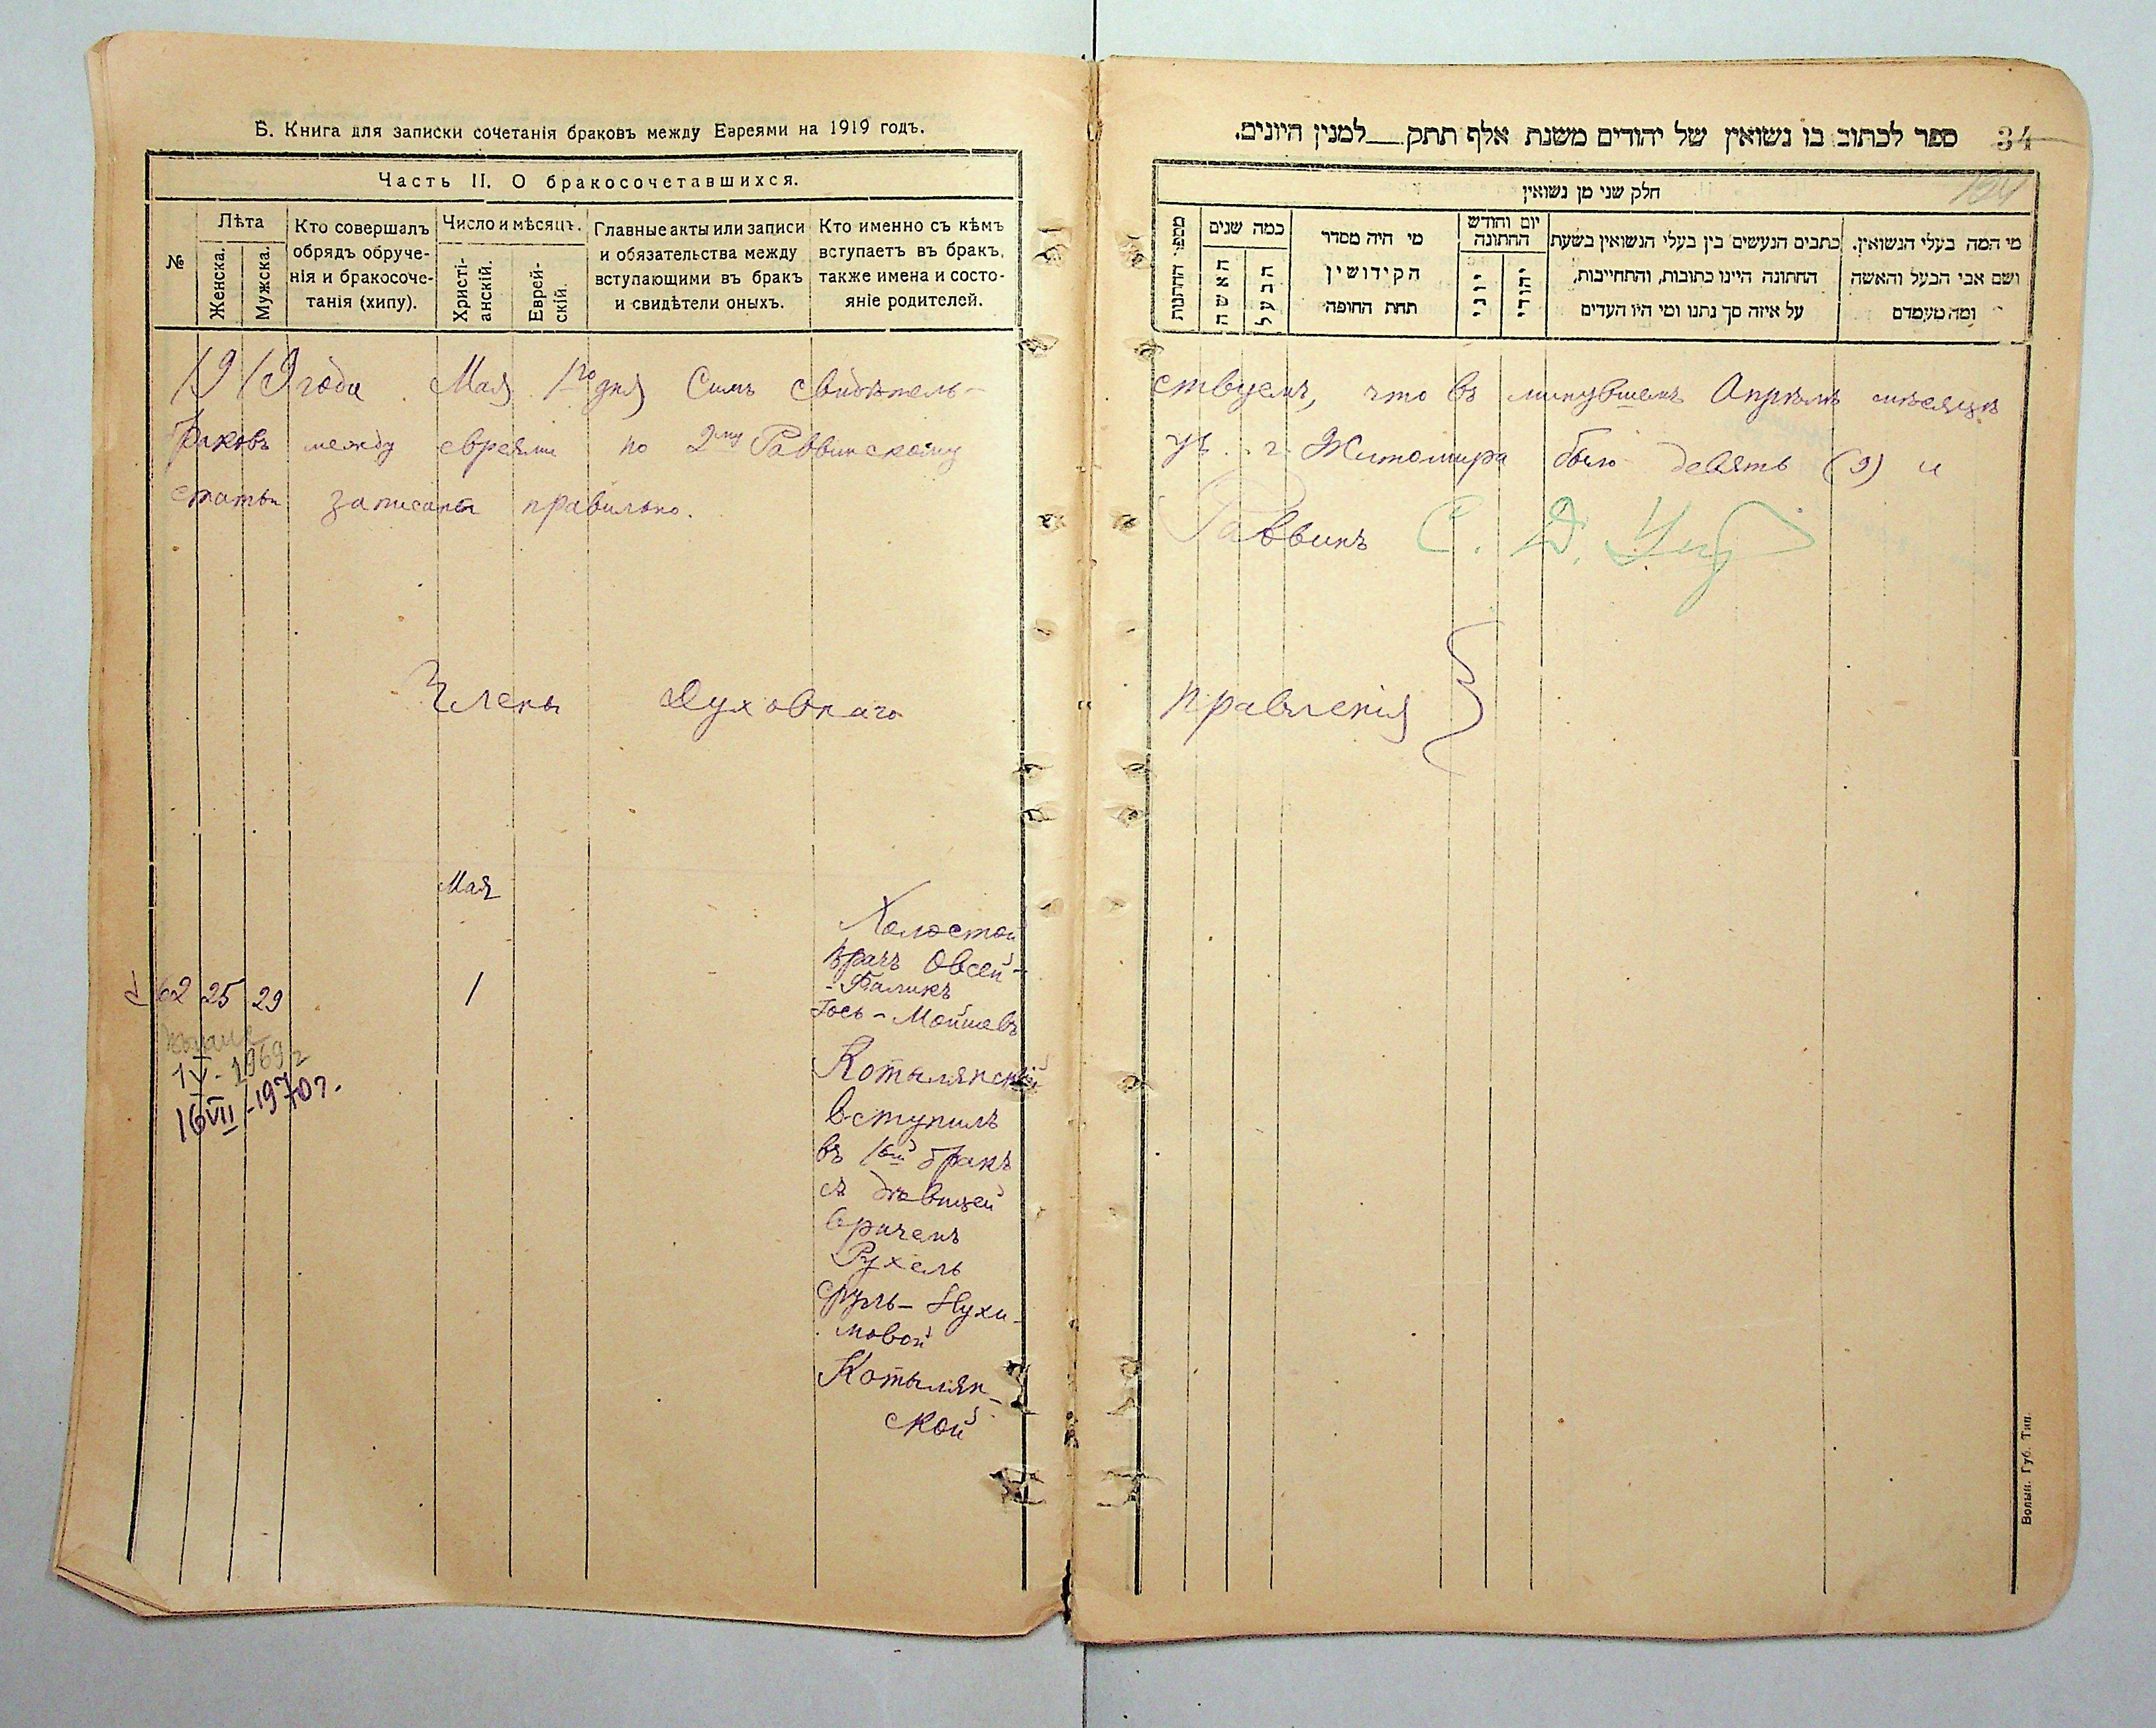 Б. Книга для записки сочетанія браковъ между Евреями на 1919 годъ.
Часть II. О бракосочетавшихся.
№
Лѣта
Женска.
Мужска.
Кто совершалъ
обрядъ обруче-
нія и бракосоче-
танія (хипу).
Число и мѣсяцъ.
Христі-
анскій.
Еврей-
скій.
Главные акты или записи
и обязательства между
вступающими въ бракъ
и свидѣтели оныхъ.
Кто именно съ кѣмъ
вступаетъ въ бракъ,
также имена и состо-
яніе родителей.
1919 года Мая 1го дня Симъ свидѣтель-
браковъ между евреями по 2му Раввинскому
статьи записаны правильно.
Члены Духовнаго
Мая
62 25 29 1
Холостой
врачъ Овсей-
Іось-Мошевъ
Котылянскій
вступилъ
въ 1ый бракъ
съ дѣвицей
врачемъ
Рухель
Сруль-Нухи-
мовой
Котылян-
ской
IV-1969 г
16 VII-1970 г.
ספר לכתוב בו נשואין של יהודים משנת אלף תתק__למנין היונים.
34
חלק שני מן נשואין
מספר החתנות
כמה שנים
האשה
הבעל
מי היה מסדר
הקידושין
תחת החופה
יום וחודש
החתונה
יוני
יהודי
כתבים הנעשים בין בעלי הנשואין בשעת
החתונה היינו כתובות, והתחייבות,
על איזה סך נתנו ומי היו העדים
מי המה בעלי הנשואין.
ושם אבי הבעל והאשה
ומה מעמדם
ствуемъ, что въ минувшемъ Апрѣлѣ мѣсяцѣ
уч. г. Житомира было девять (9) и
Раввинъ С. Д.
Правленія
Волын. Губ. Тип.